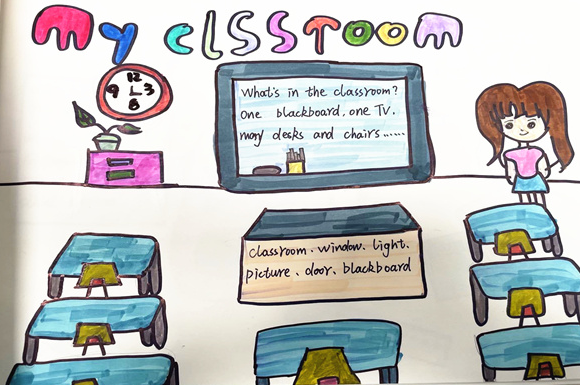 My clssroom
12
9 3
6
What's in the classroom?
One blackboard, one TV.
many desks and chairs......
classroom、window、light、
picture、door、blackboard